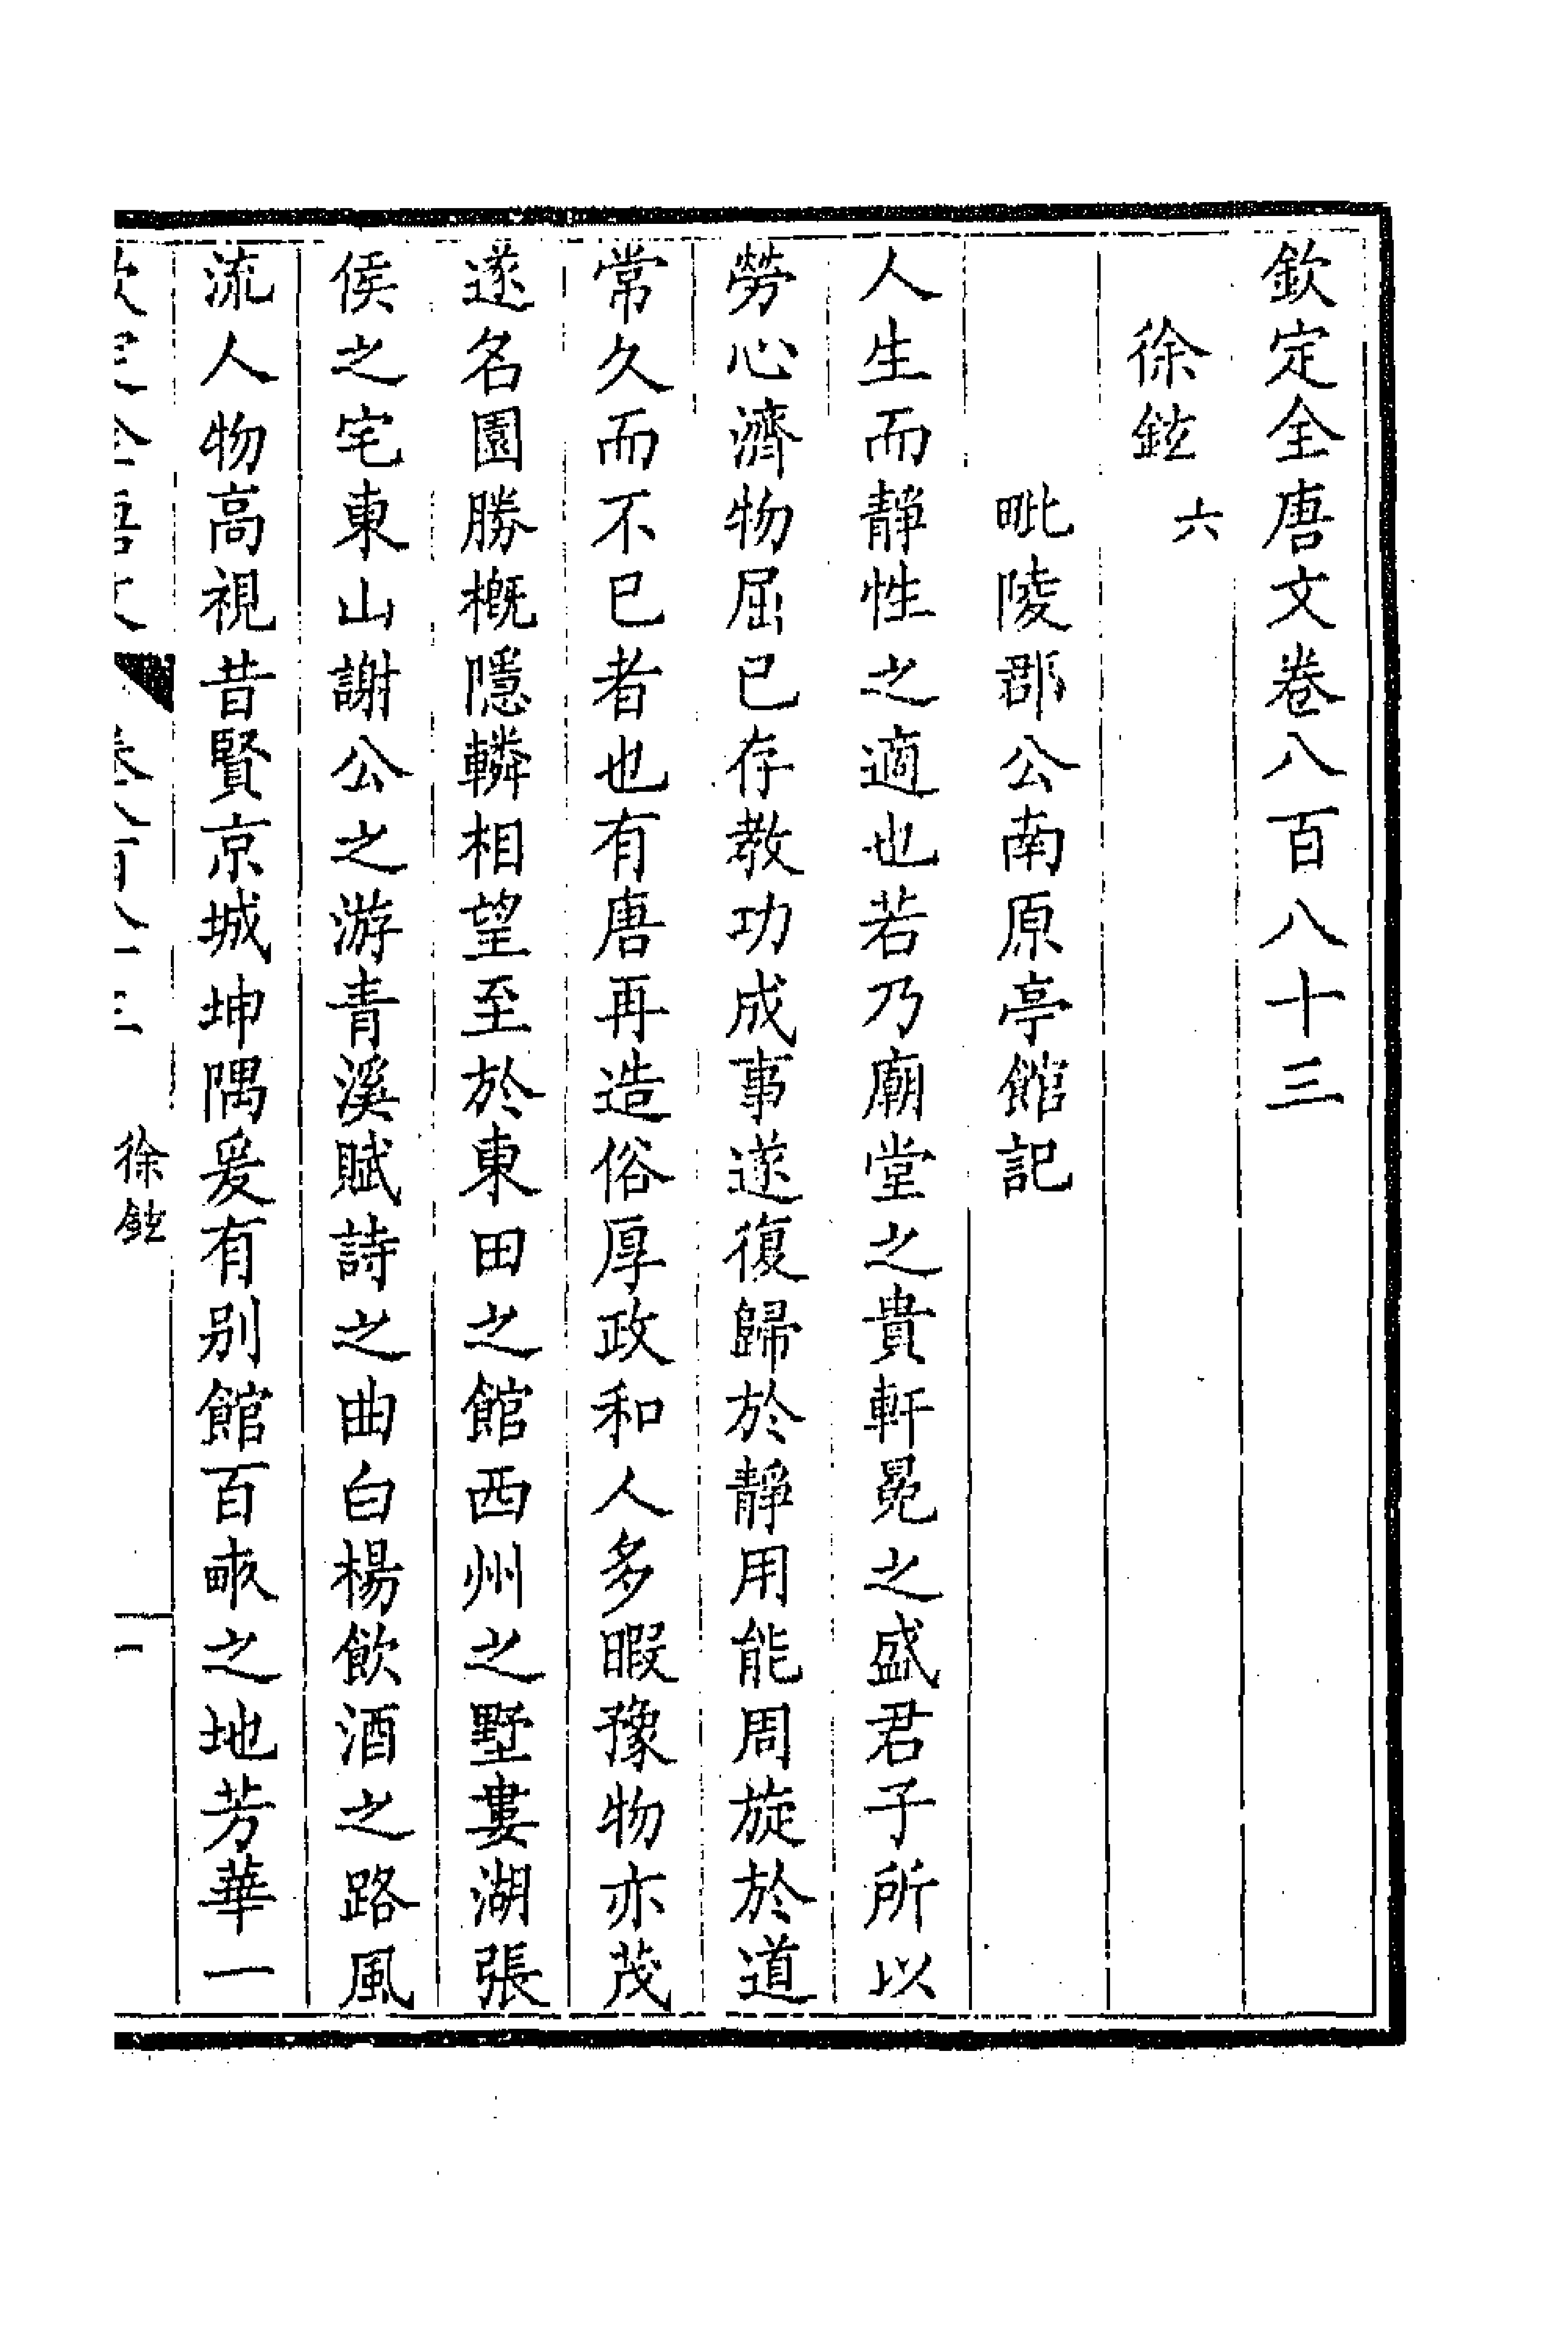 欽定全唐文卷八百八十三
徐鉉 六
毗陵郡公南原亭館記
人生而靜性之適也若乃廟堂之貴軒冕之盛君子所以
勞心濟物屈已存教功成事遂復歸於靜用能周旋於道
常久而不已者也有唐再造俗厚政和人多暇豫物亦茂
遂名園勝概隱轔相望至於東田之館西州之墅婁湖張
侯之宅東山謝公之游青溪賦詩之曲白楊飲酒之路風
流人物高視昔賢京城坤隅爰有別館百畝之地芳華一
欽定全唐文 卷八百八十三 徐鉉 一